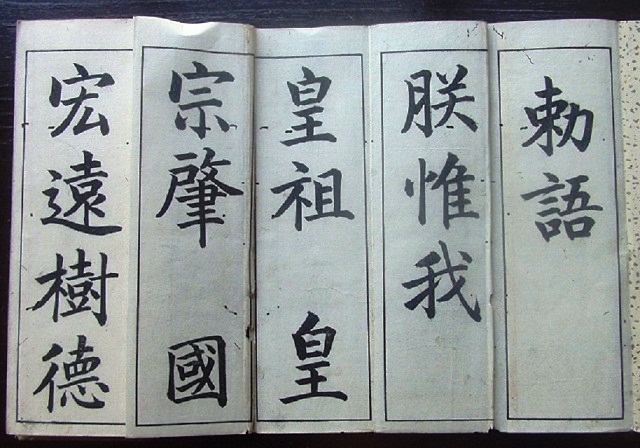 勅語
朕惟我
皇祖皇
宗肇國
宏遠樹德